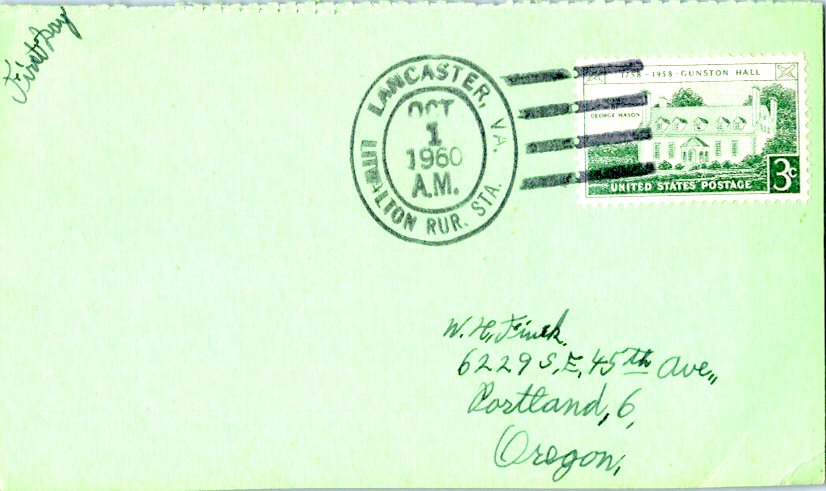 First Day
LANCASTER, VA.
OCT
1
1960
A.M.
RUR. STA.
1758-1958-GUNSTON HALL
GEORGE MASON
UNITED STATES POSTAGE
3c
W. H. Finck.
6229 S, E, 45th Ave,,
Portland, 6,
Oregon,